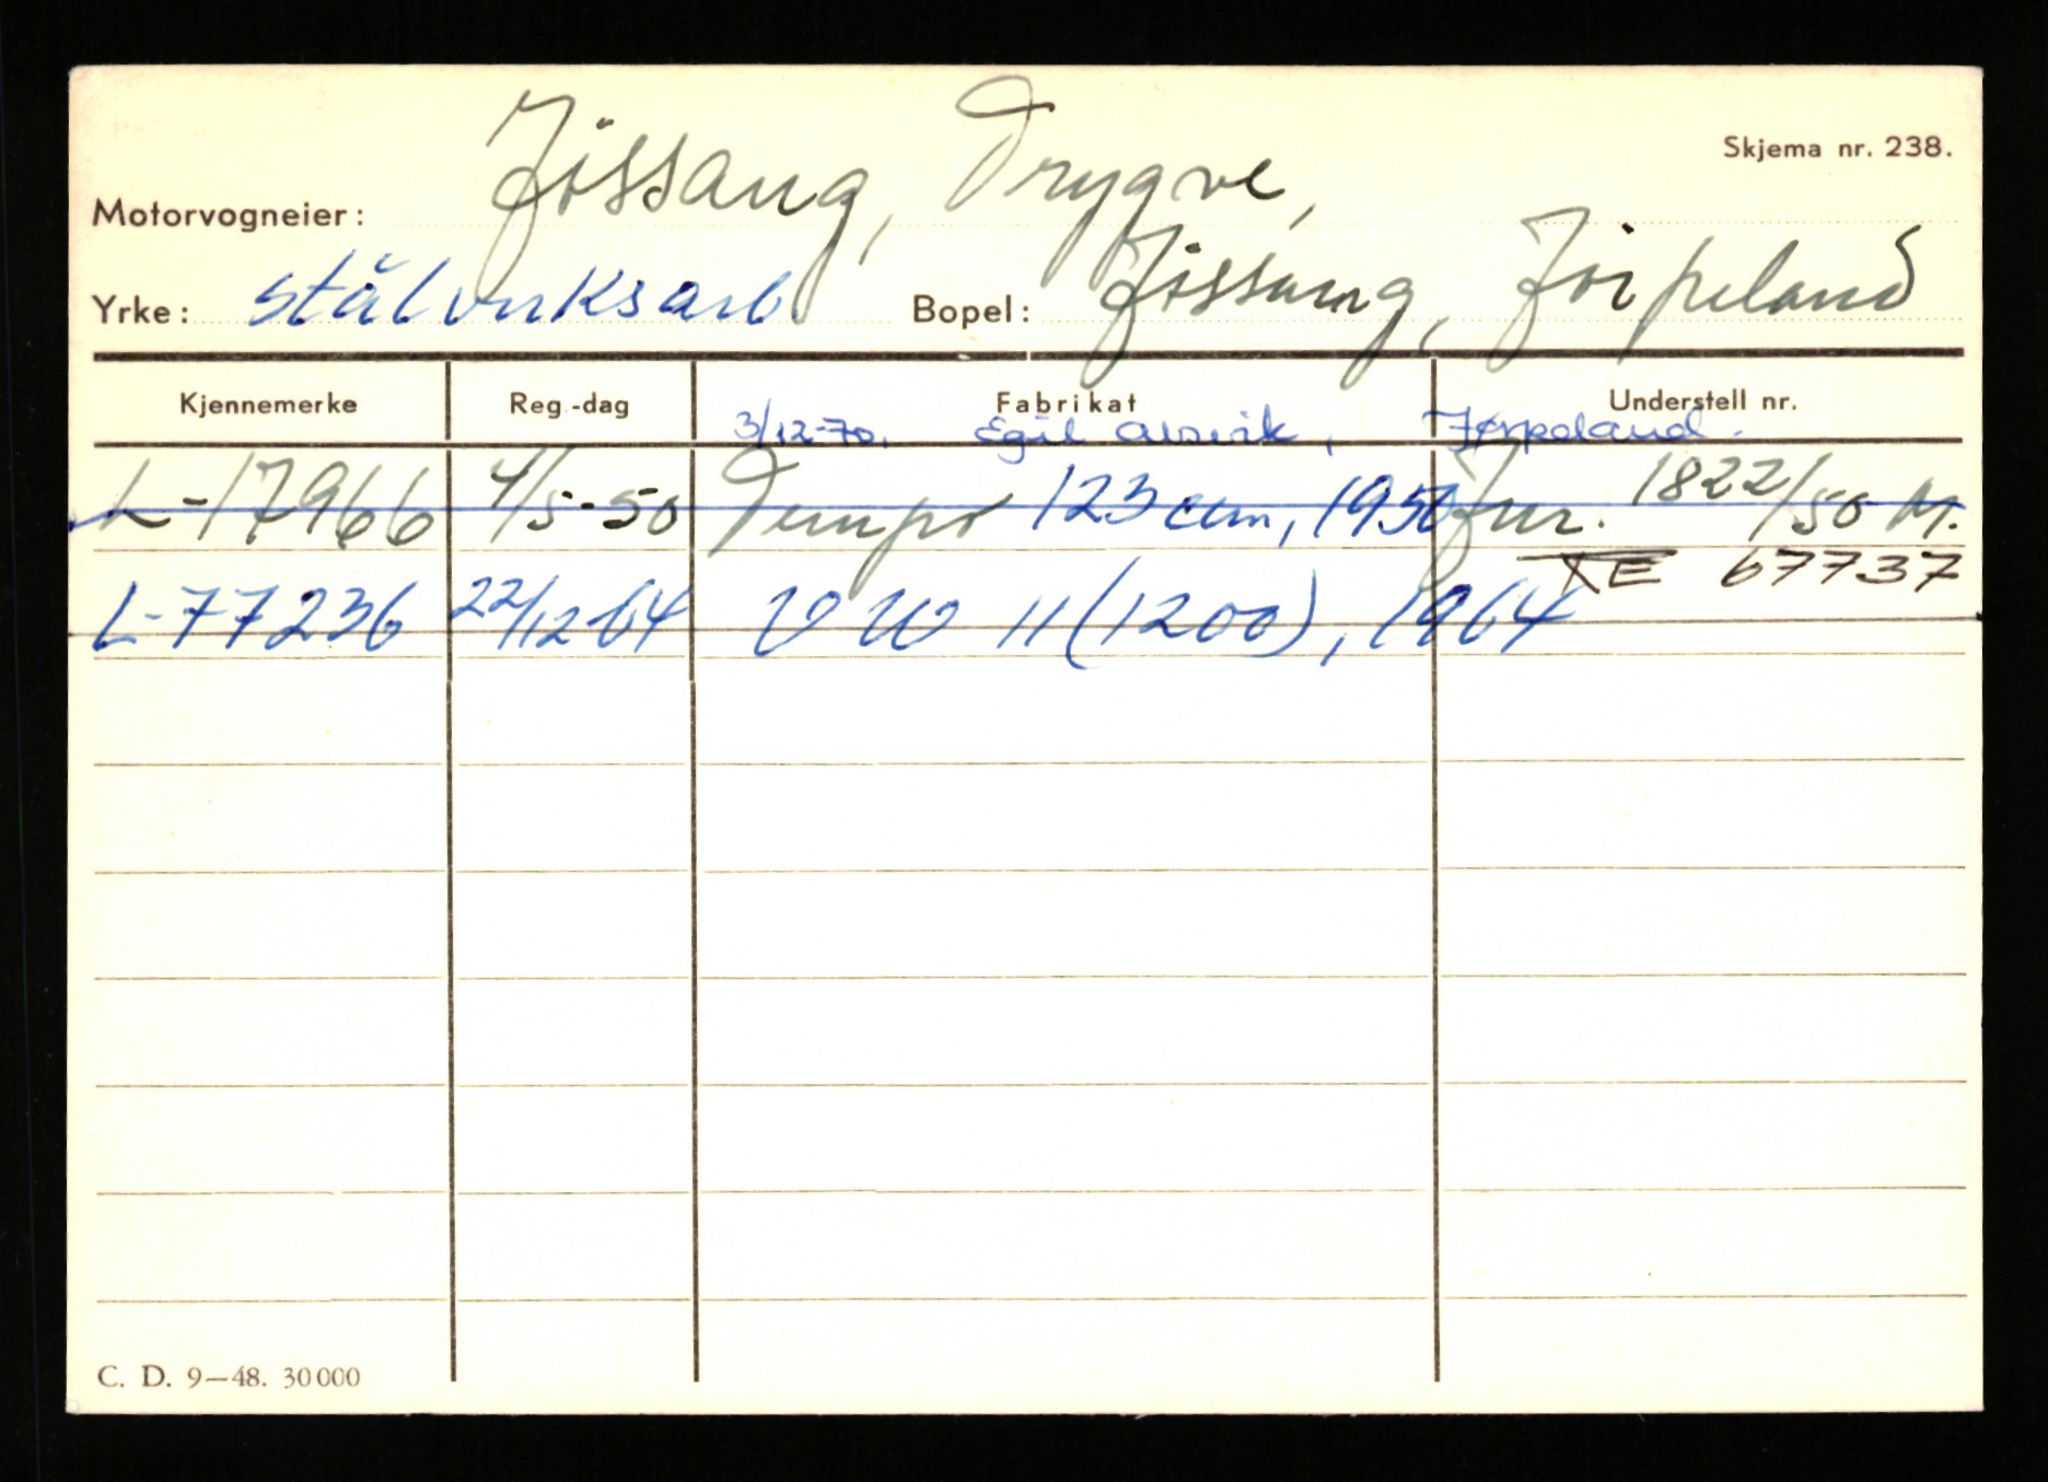 Skjema nr. 238.
Motorvogneier: Jøssang, Trygve,
Yrke: stålverksarb. Bopel: Jøssang, Jørpeland
Kjennemerke Reg.-dag Fabrikat Understell nr.
3/12-70. Egil Alsvik, Jørpeland.
L-17966 4/5-50 Tempo 123 ccm, 1950 Fnr. 1822/50 M.
67737
L-77236 22/12-64 VW 11 (1200), 1964
C. D. 9—48. 30 000